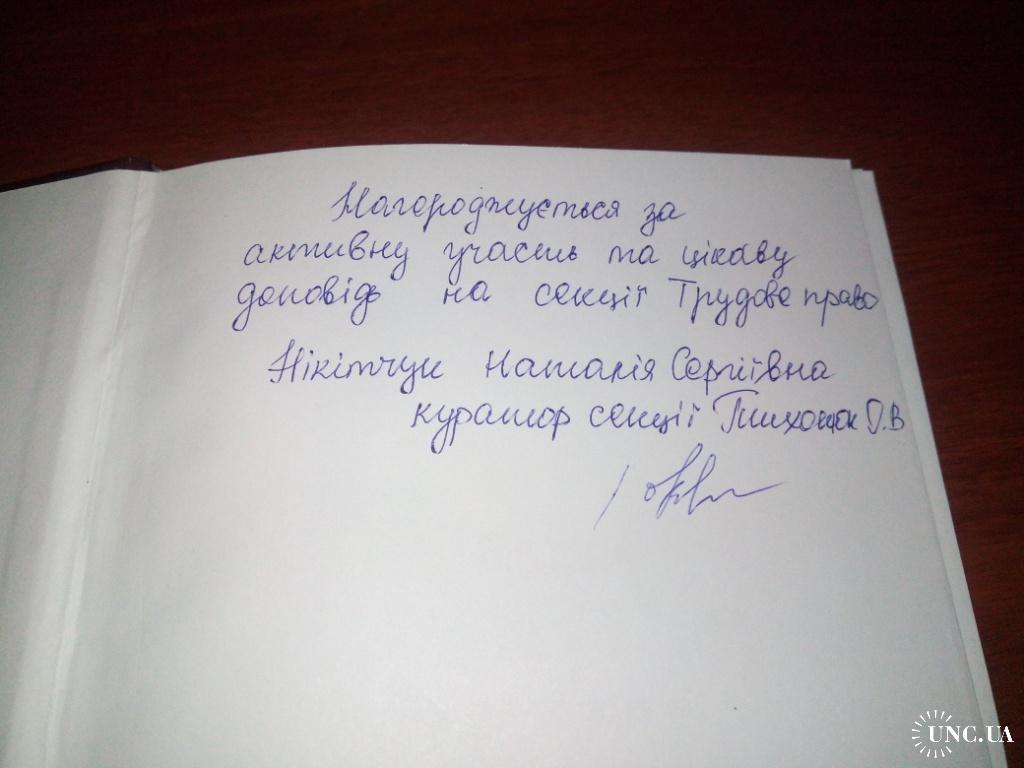 Нагороджується за
активну участь та цікаву
доповідь на секції Трудове право
Нікітчук Наталія Сергіївна
куратор секції О.В
UNC.UA